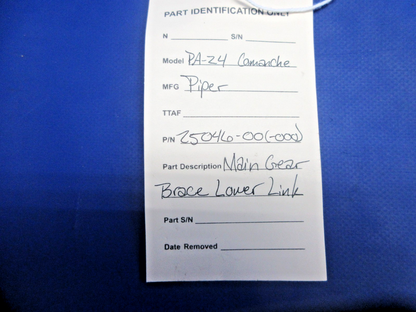 PART IDENTIFICATION ONLY
N ________ S/N ________
Model PA-24 Comanche
MFG Piper
TTAF ________
P/N 25046-00(-000)
Part Description Main Gear
Brace Lower Link
Part S/N ________
Date Removed ________